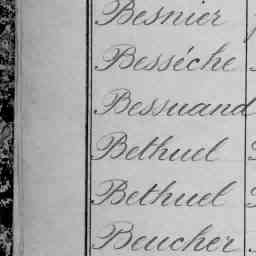 Besnier
Besséche
Bessuand
Bethuel
Bethuel
Beucher